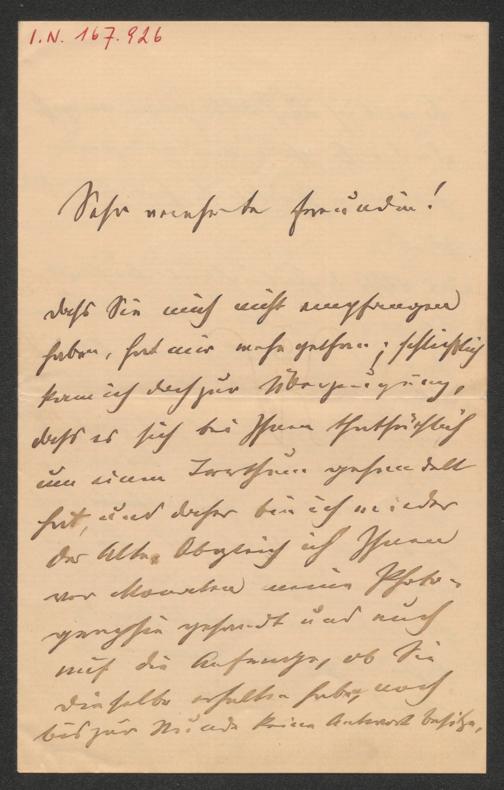 I.N. 167.926
Sehr verehrte Freundin!
daß Sie mich nicht empfangen
haben, hat mir wehe gethan; schließlich
kam ich doch zur Überzeugung,
daß es sich bei Ihnen thatsächlich
um einen Irrthum gehandelt
hat, und daher bin ich wieder
der Alte. Obgleich ich Ihnen
vor Monaten meine Photo-
graphie gesandt und auch
auf die Anfrage, ob Sie
dieselbe erhalten haben, noch
bis zur Stunde keine Antwort besitze,